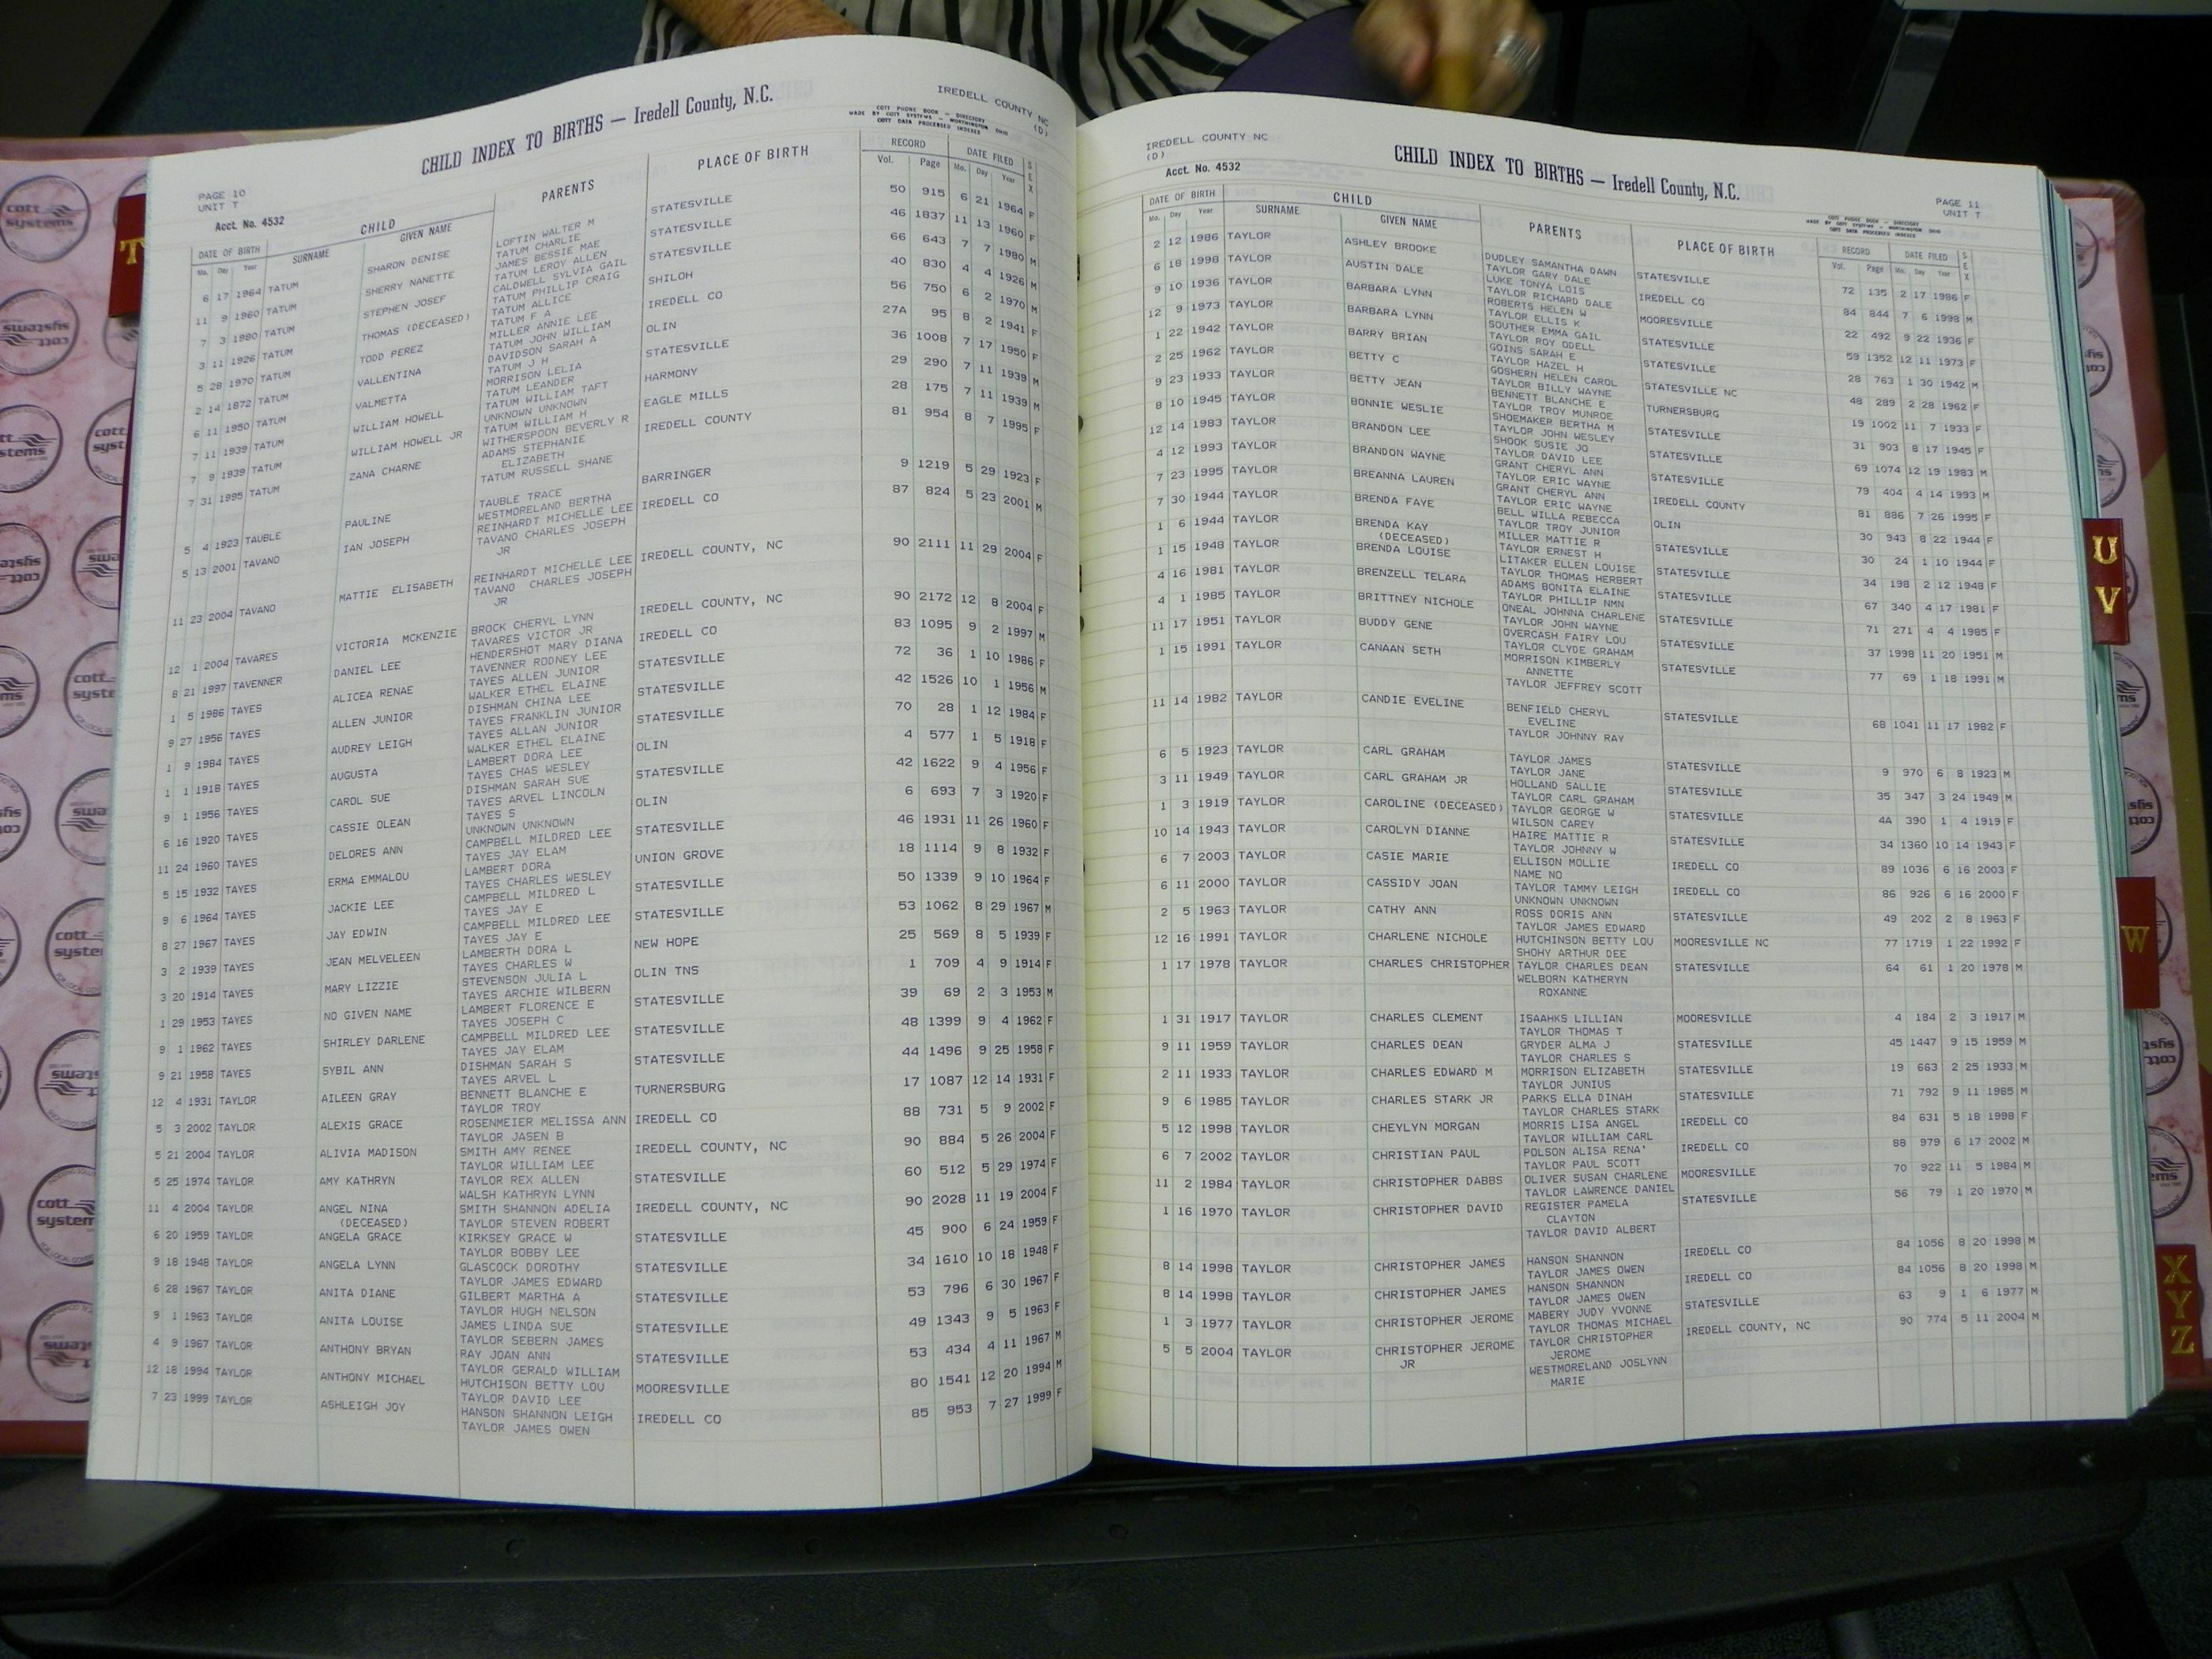 CHILD INDEX TO BIRTHS — Iredell County, N.C.
IREDELL COUNTY NC
(D)
COTT PHONE BOOK - DIRECTORY
MADE BY COTT SYSTEMS - WORTHINGTON OHIO
COTT DATA PROCESSED INDEXES
PAGE 10
UNIT T
Acct. No. 4532
DATE OF BIRTH CHILD PARENTS PLACE OF BIRTH RECORD DATE FILED SEX
Mo. Day Year SURNAME GIVEN NAME Vol. Page Mo. Day Year
6 17 1964 TATUM SHARON DENISE LOFTIN WALTER M STATESVILLE 50 915 6 21 1964 F
TATUM CHARLIE
11 9 1960 TATUM SHERRY NANETTE JAMES BESSIE MAE STATESVILLE 46 1837 11 13 1960 F
TATUM LEROY ALLEN
7 3 1980 TATUM STEPHEN JOSEF CALDWELL SYLVIA GAIL STATESVILLE 66 643 7 7 1980 M
TATUM PHILLIP CRAIG
3 11 1926 TATUM THOMAS (DECEASED) TATUM ALLICE SHILOH 40 830 4 4 1926 M
TATUM F A
5 28 1970 TATUM TODD PEREZ MILLER ANNIE LEE IREDELL CO 56 750 6 2 1970 M
TATUM JOHN WILLIAM
2 14 1872 TATUM VALLENTINA DAVIDSON SARAH A OLIN 27A 95 8 2 1941 F
TATUM J H
6 11 1950 TATUM VALMETTA MORRISON LELIA STATESVILLE 36 1008 7 17 1950 F
TATUM LEANDER
7 11 1939 TATUM WILLIAM HOWELL TATUM WILLIAM TAFT HARMONY 29 290 7 11 1939 M
UNKNOWN UNKNOWN
7 9 1939 TATUM WILLIAM HOWELL JR TATUM WILLIAM H EAGLE MILLS 28 175 7 11 1939 M
WITHERSPOON BEVERLY R
7 31 1995 TATUM ZANA CHARNE ADAMS STEPHANIE IREDELL COUNTY 81 954 8 7 1995 F
ELIZABETH
TATUM RUSSELL SHANE
5 4 1923 TAUBLE PAULINE TAUBLE TRACE BARRINGER 9 1219 5 29 1923 F
WESTMORELAND BERTHA
5 13 2001 TAVANO IAN JOSEPH REINHARDT MICHELLE LEE IREDELL CO 87 824 5 23 2001 M
TAVANO CHARLES JOSEPH
JR
11 23 2004 TAVANO MATTIE ELISABETH REINHARDT MICHELLE LEE IREDELL COUNTY, NC 90 2111 11 29 2004 F
TAVANO CHARLES JOSEPH
JR
12 1 2004 TAVARES VICTORIA MCKENZIE BROCK CHERYL LYNN IREDELL COUNTY, NC 90 2172 12 8 2004 F
TAVARES VICTOR JR
8 21 1997 TAVENNER DANIEL LEE HENDERSHOT MARY DIANA IREDELL CO 83 1095 9 2 1997 M
TAVENNER RODNEY LEE
1 5 1986 TAYES ALICEA RENAE TAYES ALLEN JUNIOR STATESVILLE 72 36 1 10 1986 F
WALKER ETHEL ELAINE
9 27 1956 TAYES ALLEN JUNIOR DISHMAN CHINA LEE STATESVILLE 42 1526 10 1 1956 M
TAYES FRANKLIN JUNIOR
1 9 1984 TAYES AUDREY LEIGH TAYES ALLAN JUNIOR STATESVILLE 70 28 1 12 1984 F
WALKER ETHEL ELAINE
1 1 1918 TAYES AUGUSTA LAMBERT DORA LEE OLIN 4 577 1 5 1918 F
TAYES CHAS WESLEY
9 1 1956 TAYES CAROL SUE DISHMAN SARAH SUE STATESVILLE 42 1622 9 4 1956 F
TAYES ARVEL LINCOLN
6 16 1920 TAYES CASSIE OLEAN TAYES S OLIN 6 693 7 3 1920 F
UNKNOWN UNKNOWN
11 24 1960 TAYES DELORES ANN CAMPBELL MILDRED LEE STATESVILLE 46 1931 11 26 1960 F
TAYES JAY ELAM
5 15 1932 TAYES ERMA EMMALOU LAMBERT DORA UNION GROVE 18 1114 9 8 1932 F
TAYES CHARLES WESLEY
9 6 1964 TAYES JACKIE LEE CAMPBELL MILDRED L STATESVILLE 50 1339 9 10 1964 F
TAYES JAY E
8 27 1967 TAYES JAY EDWIN CAMPBELL MILDRED LEE STATESVILLE 53 1062 8 29 1967 M
TAYES JAY E
3 2 1939 TAYES JEAN MELVELEEN LAMBERTH DORA L NEW HOPE 25 569 8 5 1939 F
TAYES CHARLES W
3 20 1914 TAYES MARY LIZZIE STEVENSON JULIA L OLIN TNS 1 709 4 9 1914 F
TAYES ARCHIE WILBERN
1 29 1953 TAYES NO GIVEN NAME LAMBERT FLORENCE E STATESVILLE 39 69 2 3 1953 M
TAYES JOSEPH C
9 1 1962 TAYES SHIRLEY DARLENE CAMPBELL MILDRED LEE STATESVILLE 48 1399 9 4 1962 F
TAYES JAY ELAM
9 21 1958 TAYES SYBIL ANN DISHMAN SARAH S STATESVILLE 44 1496 9 25 1958 F
TAYES ARVEL L
12 4 1931 TAYLOR AILEEN GRAY BENNETT BLANCHE E TURNERSBURG 17 1087 12 14 1931 F
TAYLOR TROY
5 3 2002 TAYLOR ALEXIS GRACE ROSENMEIER MELISSA ANN IREDELL CO 88 731 5 9 2002 F
TAYLOR JASEN B
5 21 2004 TAYLOR ALIVIA MADISON SMITH AMY RENEE IREDELL COUNTY, NC 90 884 5 26 2004 F
TAYLOR WILLIAM LEE
5 25 1974 TAYLOR AMY KATHRYN TAYLOR REX ALLEN STATESVILLE 60 512 5 29 1974 F
WALSH KATHRYN LYNN
11 4 2004 TAYLOR ANGEL NINA SMITH SHANNON ADELIA IREDELL COUNTY, NC 90 2028 11 19 2004 F
(DECEASED) TAYLOR STEVEN ROBERT
6 20 1959 TAYLOR ANGELA GRACE KIRKSEY GRACE W STATESVILLE 45 900 6 24 1959 F
TAYLOR BOBBY LEE
9 18 1948 TAYLOR ANGELA LYNN GLASCOCK DOROTHY STATESVILLE 34 1610 10 18 1948 F
TAYLOR JAMES EDWARD
6 28 1967 TAYLOR ANITA DIANE GILBERT MARTHA A STATESVILLE 53 796 6 30 1967 F
TAYLOR HUGH NELSON
9 1 1963 TAYLOR ANITA LOUISE JAMES LINDA SUE STATESVILLE 49 1343 9 5 1963 F
TAYLOR SEBERN JAMES
4 9 1967 TAYLOR ANTHONY BRYAN RAY JOAN ANN STATESVILLE 53 434 4 11 1967 M
TAYLOR GERALD WILLIAM
12 18 1994 TAYLOR ANTHONY MICHAEL HUTCHISON BETTY LOU MOORESVILLE 80 1541 12 20 1994 M
TAYLOR DAVID LEE
7 23 1999 TAYLOR ASHLEIGH JOY HANSON SHANNON LEIGH IREDELL CO 85 953 7 27 1999 F
TAYLOR JAMES OWEN
IREDELL COUNTY NC
(D)
Acct. No. 4532
CHILD INDEX TO BIRTHS — Iredell County, N.C.
PAGE 11
UNIT T
COTT PHONE BOOK - DIRECTORY
MADE BY COTT SYSTEMS - WORTHINGTON OHIO
COTT DATA PROCESSED INDEXES
DATE OF BIRTH CHILD PARENTS PLACE OF BIRTH RECORD DATE FILED SEX
Mo. Day Year SURNAME GIVEN NAME Vol. Page Mo. Day Year
2 12 1986 TAYLOR ASHLEY BROOKE DUDLEY SAMANTHA DAWN STATESVILLE 72 135 2 17 1986 F
TAYLOR GARY DALE
6 18 1998 TAYLOR AUSTIN DALE LUKE TONYA LOIS IREDELL CO 84 844 7 6 1998 M
TAYLOR RICHARD DALE
9 10 1936 TAYLOR BARBARA LYNN ROBERTS HELEN W MOORESVILLE 22 492 9 22 1936 F
TAYLOR ELLIS K
12 9 1973 TAYLOR BARBARA LYNN SOUTHER EMMA GAIL STATESVILLE 59 1352 12 11 1973 F
TAYLOR ROY ODELL
1 22 1942 TAYLOR BARRY BRIAN GOINS SARAH E STATESVILLE 28 763 1 30 1942 M
TAYLOR HAZEL H
2 25 1962 TAYLOR BETTY C GOSHERN HELEN CAROL STATESVILLE NC 48 289 2 28 1962 F
TAYLOR BILLY WAYNE
9 23 1933 TAYLOR BETTY JEAN BENNETT BLANCHE E TURNERSBURG 19 1002 11 7 1933 F
TAYLOR TROY MUNROE
8 10 1945 TAYLOR BONNIE WESLIE SHOEMAKER BERTHA M STATESVILLE 31 903 8 17 1945 F
TAYLOR JOHN WESLEY
12 14 1983 TAYLOR BRANDON LEE SHOOK SUSIE JO STATESVILLE 69 1074 12 19 1983 M
TAYLOR DAVID LEE
4 12 1993 TAYLOR BRANDON WAYNE GRANT CHERYL ANN STATESVILLE 79 404 4 14 1993 M
TAYLOR ERIC WAYNE
7 23 1995 TAYLOR BREANNA LAUREN GRANT CHERYL ANN IREDELL COUNTY 81 886 7 26 1995 F
TAYLOR ERIC WAYNE
7 30 1944 TAYLOR BRENDA FAYE BELL WILLA REBECCA OLIN 30 943 8 22 1944 F
TAYLOR TROY JUNIOR
1 6 1944 TAYLOR BRENDA KAY MILLER MATTIE R STATESVILLE 30 24 1 10 1944 F
(DECEASED) TAYLOR ERNEST H
1 15 1948 TAYLOR BRENDA LOUISE LITAKER ELLEN LOUISE STATESVILLE 34 198 2 12 1948 F
TAYLOR THOMAS HERBERT
4 16 1981 TAYLOR BRENZELL TELARA ADAMS BONITA ELAINE STATESVILLE 67 340 4 17 1981 F
TAYLOR PHILLIP NMN
4 1 1985 TAYLOR BRITTNEY NICHOLE ONEAL JOHNNA CHARLENE STATESVILLE 71 271 4 4 1985 F
TAYLOR JOHN WAYNE
11 17 1951 TAYLOR BUDDY GENE OVERCASH FAIRY LOU STATESVILLE 37 1998 11 20 1951 M
TAYLOR CLYDE GRAHAM
1 15 1991 TAYLOR CANAAN SETH MORRISON KIMBERLY STATESVILLE 77 69 1 18 1991 M
ANNETTE
TAYLOR JEFFREY SCOTT
11 14 1982 TAYLOR CANDIE EVELINE BENFIELD CHERYL STATESVILLE 68 1041 11 17 1982 F
EVELINE
TAYLOR JOHNNY RAY
6 5 1923 TAYLOR CARL GRAHAM TAYLOR JAMES STATESVILLE 9 970 6 8 1923 M
TAYLOR JANE
3 11 1949 TAYLOR CARL GRAHAM JR HOLLAND SALLIE STATESVILLE 35 347 3 24 1949 M
TAYLOR CARL GRAHAM
1 3 1919 TAYLOR CAROLINE (DECEASED) TAYLOR GEORGE W STATESVILLE 4A 390 1 4 1919 F
WILSON CAREY
10 14 1943 TAYLOR CAROLYN DIANNE HAIRE MATTIE R STATESVILLE 34 1360 10 14 1943 F
TAYLOR JOHNNY W
6 7 2003 TAYLOR CASIE MARIE ELLISON MOLLIE IREDELL CO 89 1036 6 16 2003 F
NAME NO
6 11 2000 TAYLOR CASSIDY JOAN TAYLOR TAMMY LEIGH IREDELL CO 86 926 6 16 2000 F
UNKNOWN UNKNOWN
2 5 1963 TAYLOR CATHY ANN ROSS DORIS ANN STATESVILLE 49 202 2 8 1963 F
TAYLOR JAMES EDWARD
12 16 1991 TAYLOR CHARLENE NICHOLE HUTCHINSON BETTY LOU MOORESVILLE NC 77 1719 1 22 1992 F
SHOHY ARTHUR DEE
1 17 1978 TAYLOR CHARLES CHRISTOPHER TAYLOR CHARLES DEAN STATESVILLE 64 61 1 20 1978 M
WELBORN KATHERYN
ROXANNE
1 31 1917 TAYLOR CHARLES CLEMENT ISAAHKS LILLIAN MOORESVILLE 4 184 2 3 1917 M
TAYLOR THOMAS T
9 11 1959 TAYLOR CHARLES DEAN GRYDER ALMA J STATESVILLE 45 1447 9 15 1959 M
TAYLOR CHARLES S
2 11 1933 TAYLOR CHARLES EDWARD M MORRISON ELIZABETH STATESVILLE 19 663 2 25 1933 M
TAYLOR JUNIUS
9 6 1985 TAYLOR CHARLES STARK JR PARKS ELLA DINAH STATESVILLE 71 792 9 11 1985 M
TAYLOR CHARLES STARK
5 12 1998 TAYLOR CHEYLYN MORGAN MORRIS LISA ANGEL IREDELL CO 84 631 5 18 1998 F
TAYLOR WILLIAM CARL
6 7 2002 TAYLOR CHRISTIAN PAUL POLSON ALISA RENA' IREDELL CO 88 979 6 17 2002 M
TAYLOR PAUL SCOTT
11 2 1984 TAYLOR CHRISTOPHER DABBS OLIVER SUSAN CHARLENE MOORESVILLE 70 922 11 5 1984 M
TAYLOR LAWRENCE DANIEL
1 16 1970 TAYLOR CHRISTOPHER DAVID REGISTER PAMELA STATESVILLE 56 79 1 20 1970 M
CLAYTON
TAYLOR DAVID ALBERT
8 14 1998 TAYLOR CHRISTOPHER JAMES HANSON SHANNON IREDELL CO 84 1056 8 20 1998 M
TAYLOR JAMES OWEN
8 14 1998 TAYLOR CHRISTOPHER JAMES HANSON SHANNON IREDELL CO 84 1056 8 20 1998 M
TAYLOR JAMES OWEN
1 3 1977 TAYLOR CHRISTOPHER JEROME MABERY JUDY YVONNE STATESVILLE 63 9 1 6 1977 M
TAYLOR THOMAS MICHAEL
5 5 2004 TAYLOR CHRISTOPHER JEROME TAYLOR CHRISTOPHER IREDELL COUNTY, NC 90 774 5 11 2004 M
JR JEROME
WESTMORELAND JOSLYNN
MARIE
T
U
V
W
X
Y
Z
cott
systems